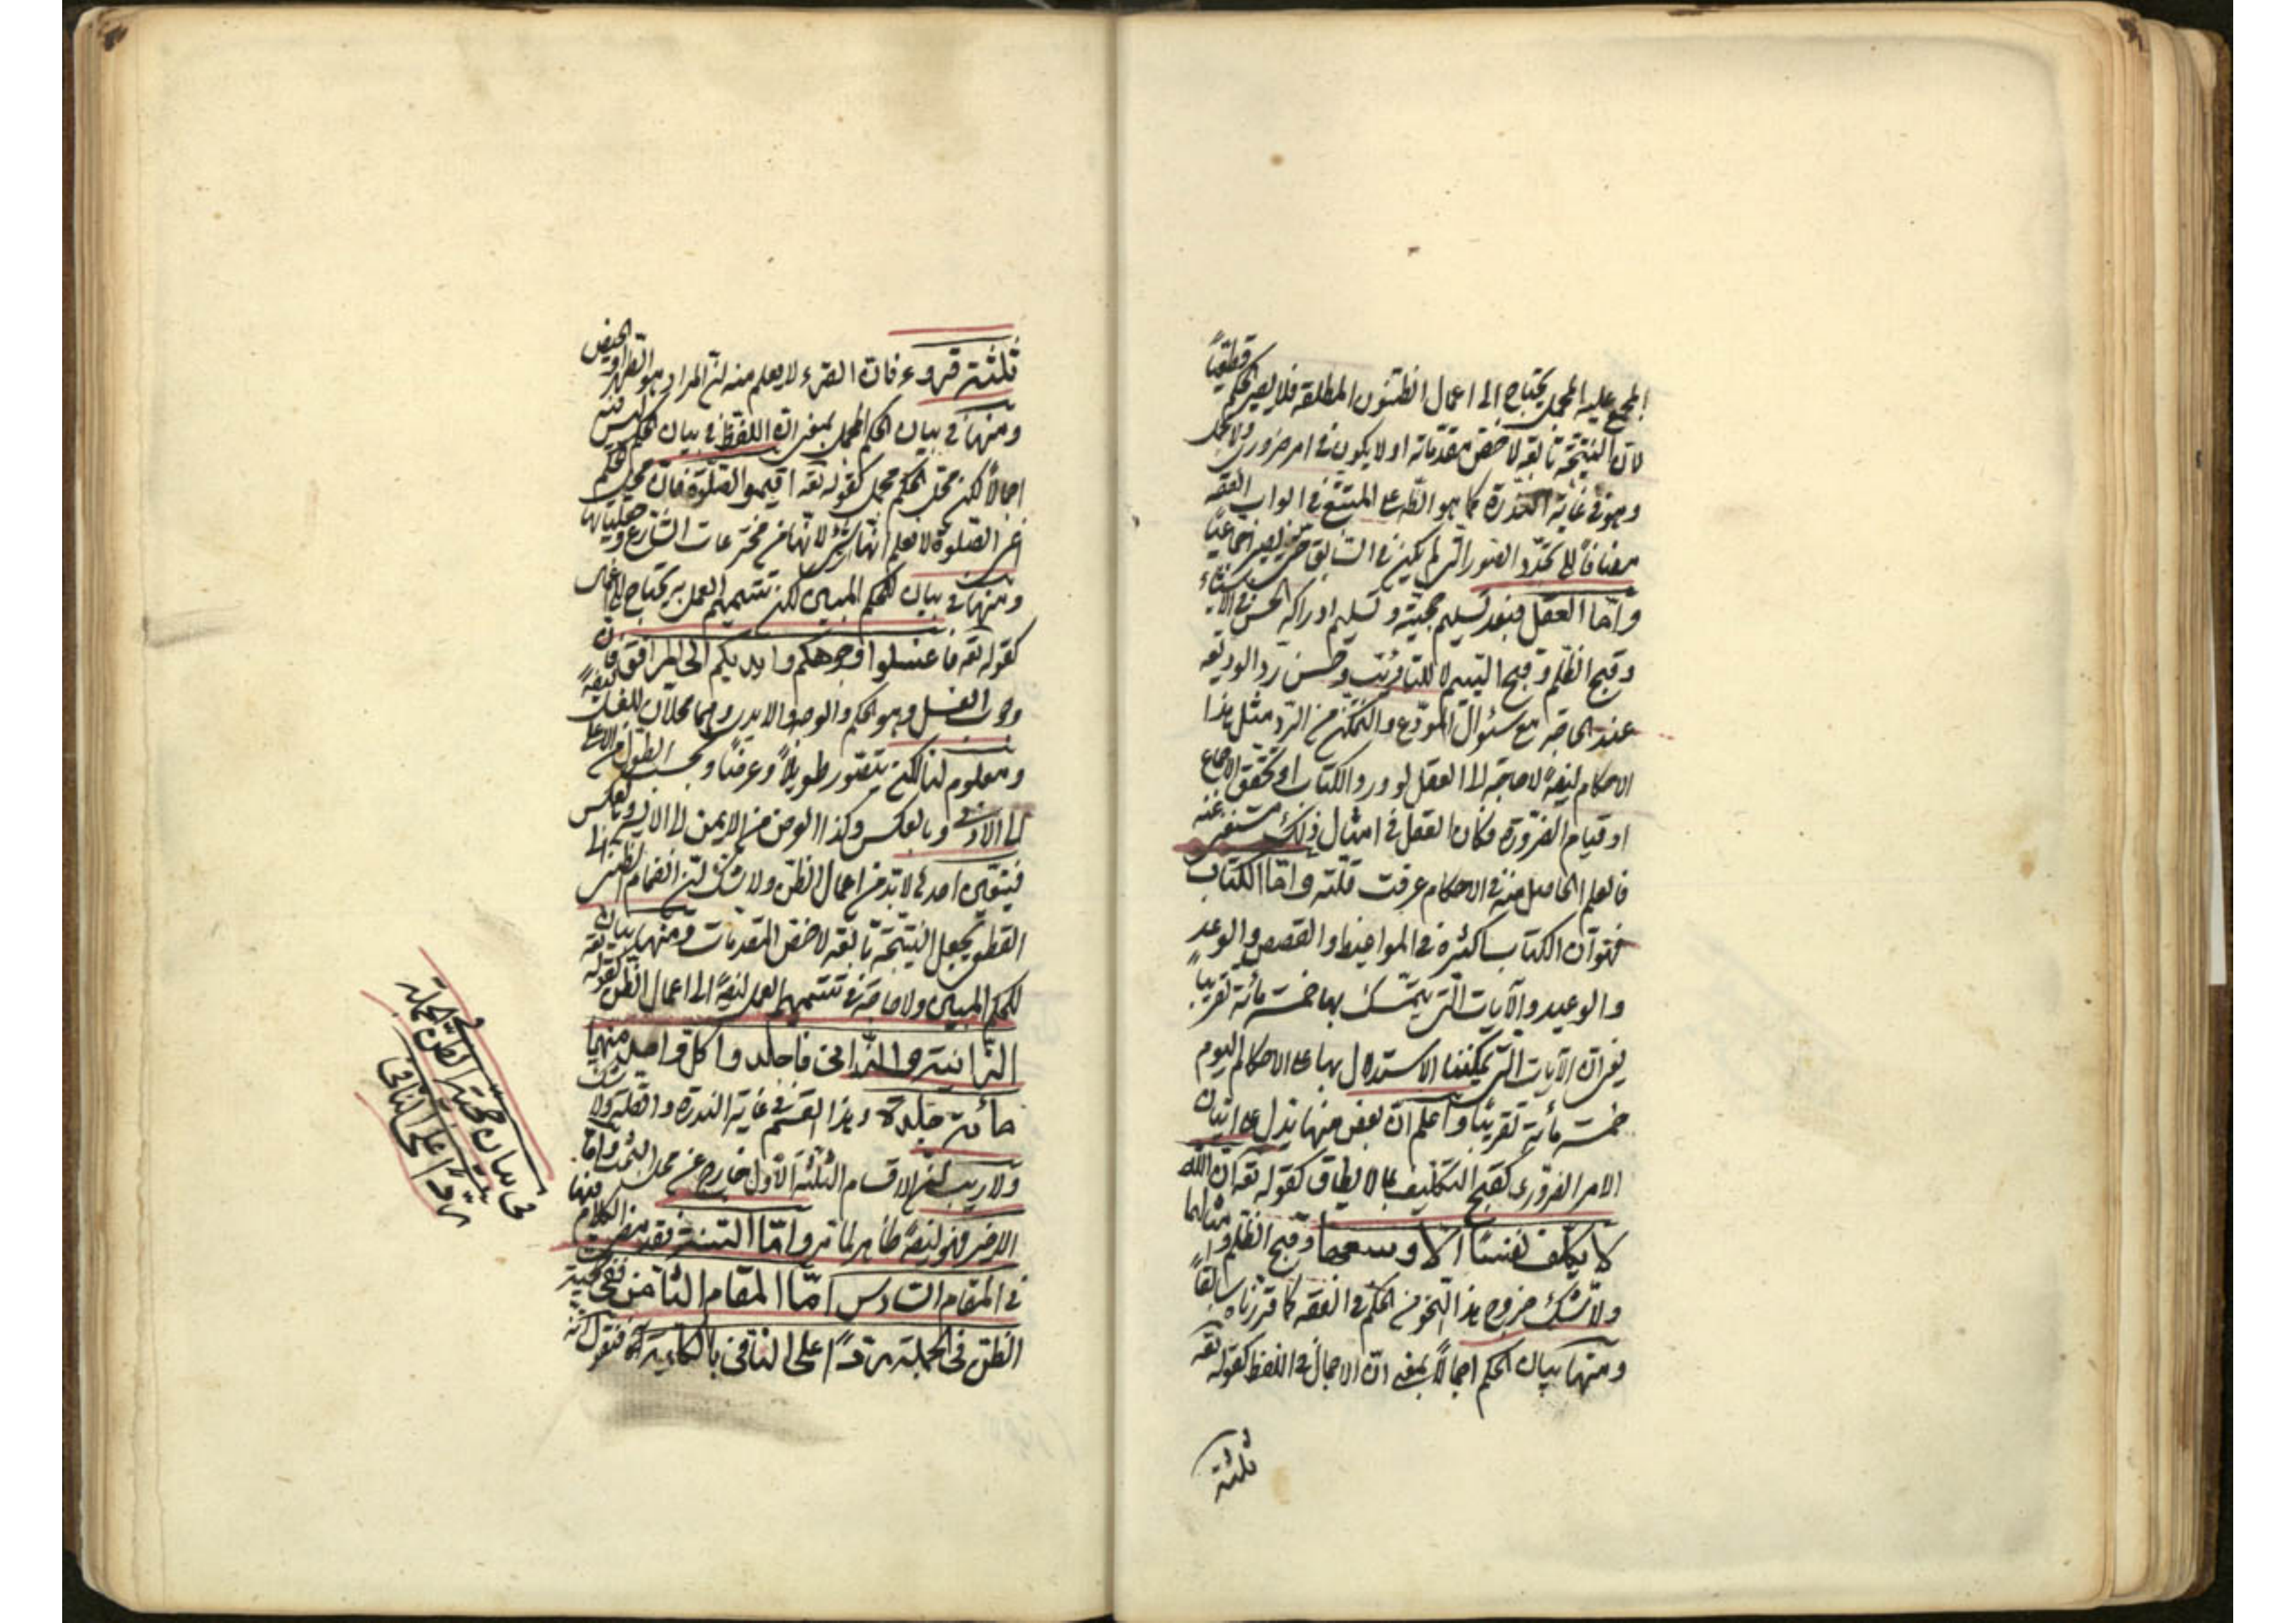 المجمع عليه المجمل يحتاج الى اعمال الظنون المطلقه فلا يصير الحكم قطعيّاً
لانّ النتيجة تابعه لاخسّ مقدماته او لا يكون في امر ضروري ولا مجمل
وهو في غاية الندرة كما هو الظ على المتتبع في ابواب الفقه
مضافاً الى تجدّد الصور التى لم يكن في السابق حتى يصير اجماعيّاً
وامّا العقل فبعد تسليم حجيّته وتسليم ادراكه الحسن في الاشياء
وقبح الظلم وقبح اليتيم لا للتاديب وحسن ردّ الوديعه
عند الحاجة مع سئوال المودع والتمكن من الردّ مثل هذا
الاحكام ايضاً لا حاجة الى العقل لورود الكتاب او تحقق الاجماع
او قيام الضّرورة فكان العقل في امثال ذلك مستغنى عنه
فالعلم الحاصل منه في الاحكام عرفت قلّته وامّا الكتاب
فهو انّ الكتاب اكثره في المواعيظ والقصص والوعد
والوعيد والآيات التى يتمسّك بها خمسمائة تقريباً
يعنى انّ الآيات التى يمكننا الاستدلال بها على الاحكام اليوم
خمسمائة تقريباً واعلم انّ بعض منها يدل على اتيان
الامر الضّرورى كقبح التكليف بما لا يطاق كقوله تعه انّ الله
لا يكلف نفسًا الا وسعها وقبح الظلم وامثالهما
ولا شك خروج هذا النحو من الحكم في الفقه كما قرّرناه سابقاً
ومنها بيان الحكم اجمالاً بمعنى انّ الاجمال في اللفظ كقوله تعه
ثلثة
ثلثة قروء فانّ القرء لا يعلم منه انّ المراد هو الطهر او الحيض
ومنها في بيان الحكم المجمل بمعنى انّ اللفظ في بيان الحكم ليس فيه
اجمالاً لكن محل الحكم مجمل كقوله تعه اقيموا الصّلوة فانّ محل الحكم
اعنى الصّلوة لا نعلم انّها لانّها من مخترعات الشّارع
ومنها في بيان الحكم المبيّن لكن تتميم العمل به يحتاج الى اعمال
كقوله تعه فاغسلوا وجوهكم وايديكم الى المرافق فانّ
وجوب الغسل وهو الحكم والوجه والايدى وهما محلان للغسل ايضاً
ومعلوم لنا لكن يتصوّر طويلاً وعرضاً وبحسب الطول من الاعلى
الى الادنى وبالعكس وكذا العرض من الايمن الى الايسر وبالعكس
فتعيّن احد لا بدّ من اعمال الظن ولا شك انّ انضمام الظنى الى
القطعى يجعل النتيجة تابعه لاخسّ المقدمات ومنها بيان
للحكم المبيّن ولا حاجة في تتميم العمل ايضاً الى اعمال الظن كقوله تعه
الزّانية والزّانى فاجلدوا كل واحد منهما
مائة جلدة وهذا القسم في غاية الندرة
ولا ريب انّ الاقسام الثلثة الاول خارج عن محل البحث وامّا
الاخير فهو ايضاً ظاهر لما مرّ وامّا السّنة فقد مضى الكلام فيها
في المقام السّادس امّا المقام الثّامن ففى حجيّة
الظن فى الجملة ردّاً على النافى بالكلية فنقول
فى بيان حجيّة الظن فى الجملة
ردّاً على النافى